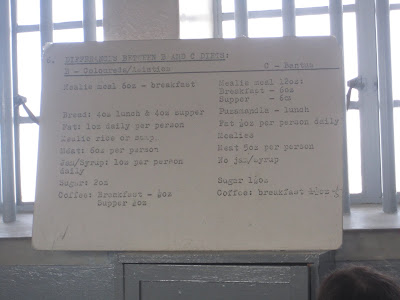 DIFFERENCE BETWEEN B AND C DIETS:
B - Coloureds/Asiatics C - Bantus
Mealie meal 6oz - breakfast Mealie meal 12oz:
Breakfast - 6oz
Supper - 6oz
Bread: 4oz lunch & 4oz supper Puzamandla - lunch
Fat: 1oz daily per person Fat ½oz per person daily
Mealie rice or samp. Mealies
Meat: 6oz per person Meat 5oz per person
Jam/Syrup: 1oz per person No jam/syrup
daily
Sugar: 2oz Sugar 1½oz
Coffee: Breakfast - ¼oz Coffee: breakfast
Supper ¼oz